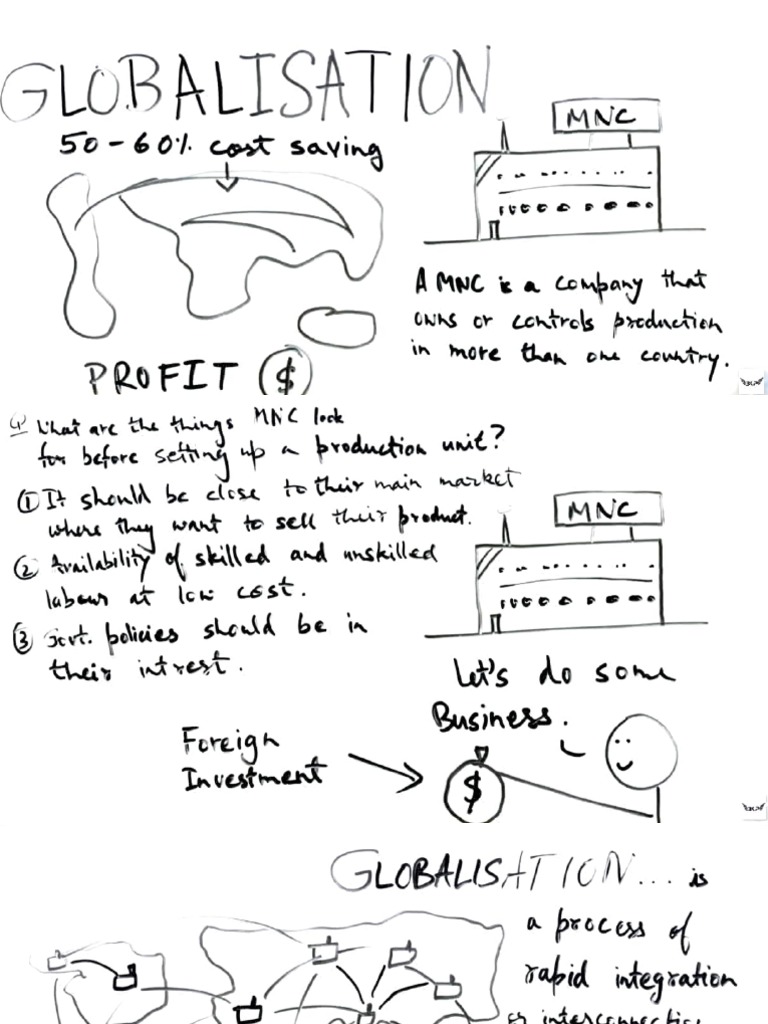 GLOBALISATION
50-60% cost saving
MNC
A MNC is a company that
owns or controls production
in more than one country.
PROFIT $
Q What are the things MNC look
for before setting up a production unit?
① It should be close to their main market
where they want to sell their product.
② Availability of skilled and unskilled
labour at low cost.
③ Govt. policies should be in
their intrest.
MNC
Let's do some
Business.
Foreign
Investment
$
GLOBALISATION... is
a process of
rapid integration
or interconnection